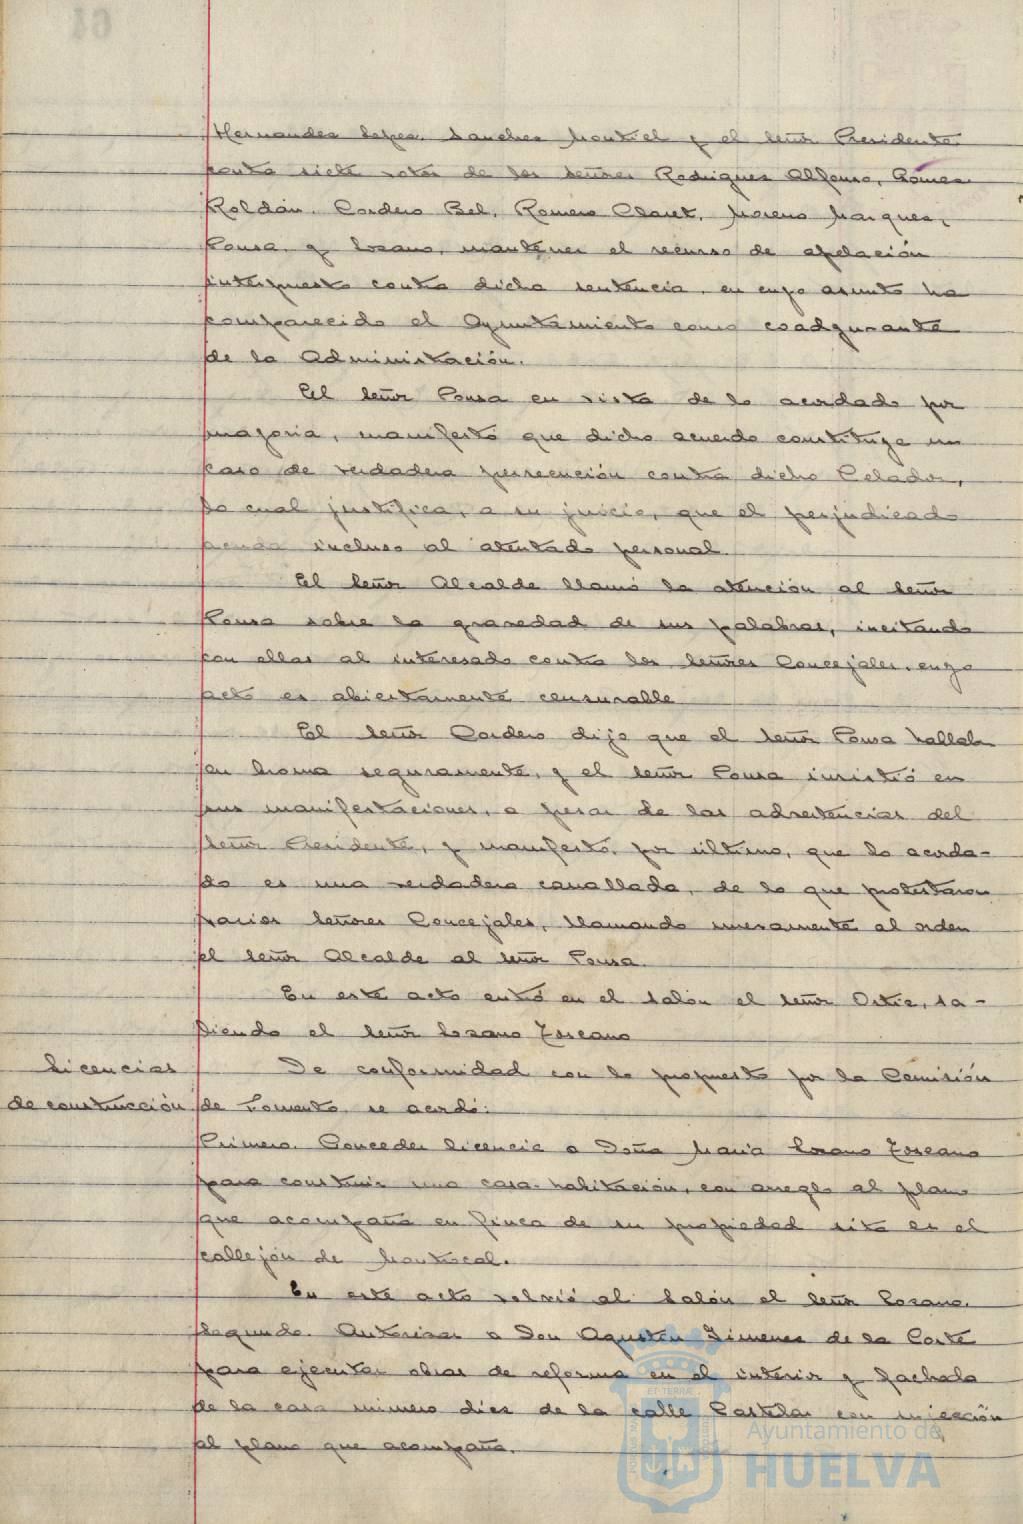 Hernandez Lopez, Sanchez Montiel y el Señor Presidente
contra siete votos de los Señores Rodriguez Alfonso, Gómez
Roldán, Cordero Bel, Romero Claret, Moreno Marquez,
Ponsa y Lozano, mantener el recurso de apelación
interpuesto contra dicha sentencia, en cuyo asunto ha
comparecido el Ayuntamiento como coadyuvante
de la Administración.
El Señor Ponsa en vista de lo acordado por
mayoria, manifestó que dicho acuerdo constituye un
caso de verdadera persecución contra dicho Celador,
lo cual justifica, a su juicio, que el perjudicado
acuda incluso al atentado personal.
El Señor Alcalde llamó la atención al Señor
Ponsa sobre la gravedad de sus palabras, incitando
con ellas al interesado contra los Señores Concejales, cuyo
acto es abiertamente censurable
El Señor Cordero dijo que el Señor Ponsa hablaba
en broma seguramente, y el Señor Ponsa insistió en
sus manifestaciones, a pesar de las advertencias del
Señor Presidente, y manifestó, por último, que lo acorda-
do es una verdadera canallada, de lo que protestaron
varios Señores Concejales, llamando nuevamente al orden
el Señor Alcalde al Señor Ponsa.
En este acto entró en el Salón el Señor Ortiz, sa-
liendo el Señor Lozano Toscano
Licencias
de construcción
De conformidad con lo propuesto por la Comisión
de Fomento se acordó:
Primero. Conceder licencia a Doña Maria Lozano Toscano
para construir una casa-habitación, con arreglo al plano
que acompaña en finca de su propiedad sita en el
callejón de Montrocal.
En este acto volvió al Salón el Señor Lozano.
Segundo. Autorizar a Don Agustin Jimenez de la Corte
para ejecutar obras de reforma en el interior y fachada
de la casa número diez de la calle Castelar con sujección
al plano que acompaña.
Ayuntamiento de
HUELVA